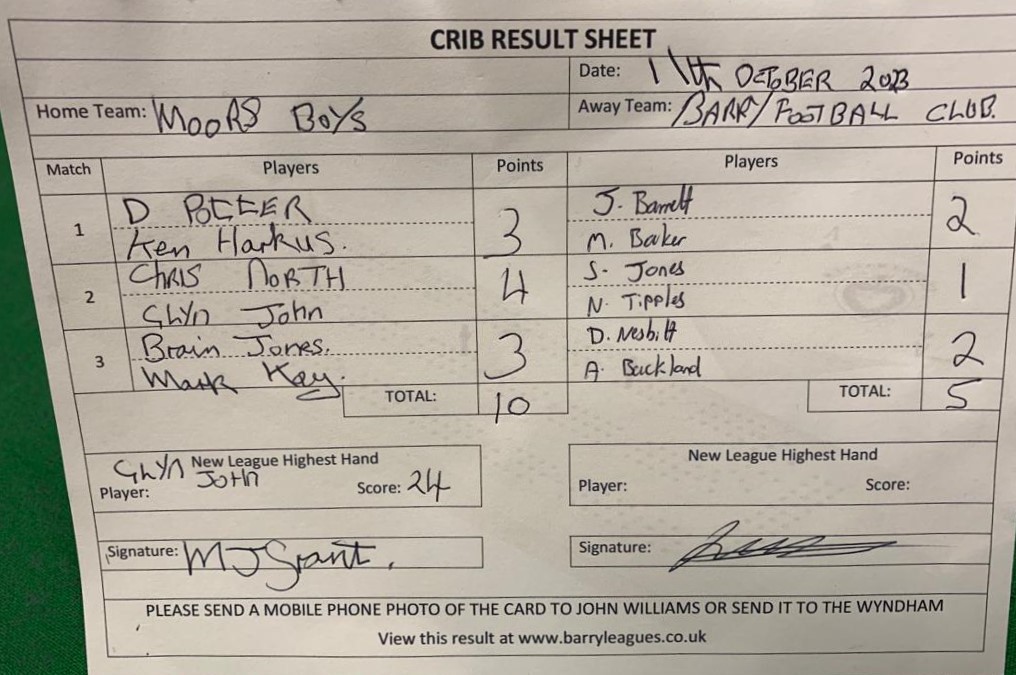 CRIB RESULT SHEET
Date: 11th OCTOBER 2023
Home Team: MOORS BOYS Away Team: BARRY FOOTBALL CLUB.
Match Players Points Players Points
1 D POTTER 3 J. Barrett 2
Ken Harkus. M. Baker
2 CHRIS NORTH 4 S. Jones 1
GLYN John N. Tipples
3 Brain Jones. 3 D. Nesbitt 2
Mark Kay. A. Buckland
TOTAL: 10 TOTAL: 5
GLYN New League Highest Hand New League Highest Hand
Player: JOHN Score: 24 Player: Score:
Signature: MJ Grant. Signature:
PLEASE SEND A MOBILE PHONE PHOTO OF THE CARD TO JOHN WILLIAMS OR SEND IT TO THE WYNDHAM
View this result at www.barryleagues.co.uk